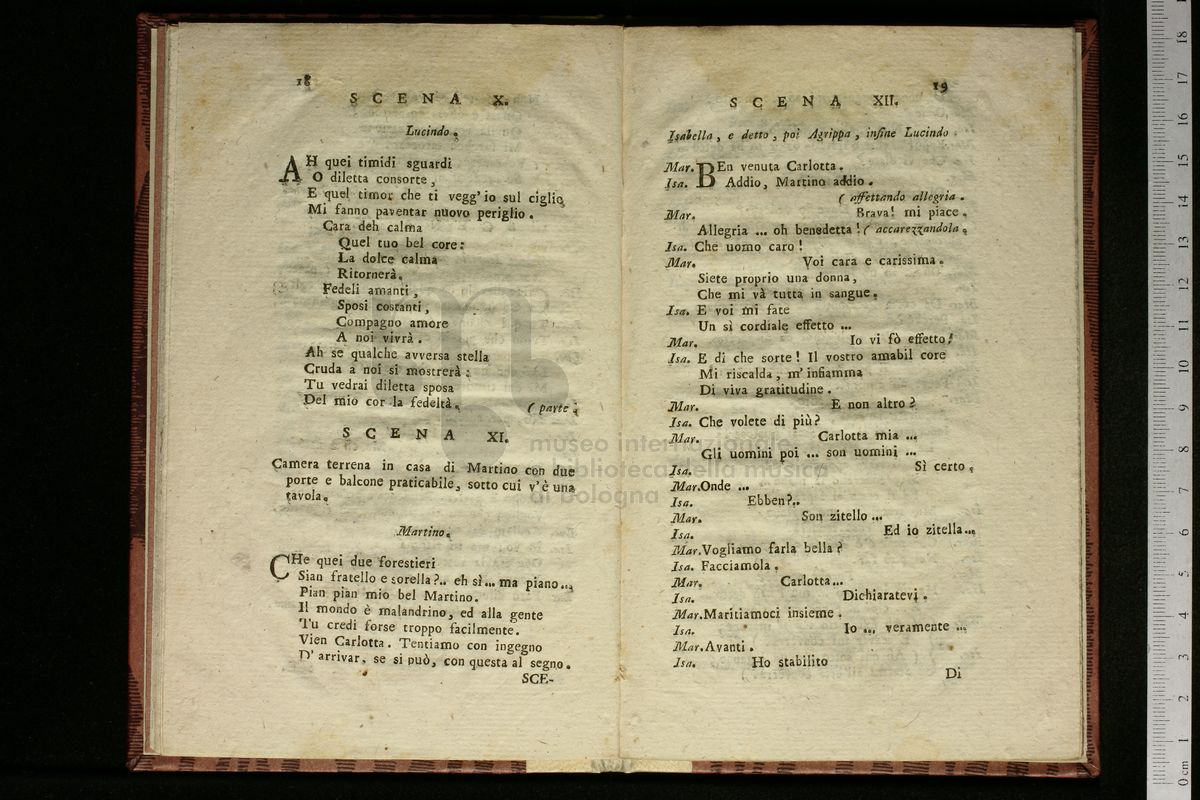 18
SCENA X.
Lucindo.
AH quei timidi sguardi
O diletta consorte,
E quel timor che ti vegg' io sul ciglio
Mi fanno paventar nuovo periglio.
Cara deh calma
Quel tuo bel core:
La dolce calma
Ritornerà.
Fedeli amanti,
Sposi costanti,
Compagno amore
A noi vivrà.
Ah se qualche avversa stella
Cruda a noi si mostrerà:
Tu vedrai diletta sposa
Del mio cor la fedeltà. (parte.
SCENA XI.
Camera terrena in casa di Martino con due
porte e balcone praticabile, sotto cui v'è una
tavola.
Martino.
CHe quei due forestieri
Sian fratello e sorella?.. eh sì... ma piano...
Pian pian mio bel Martino.
Il mondo è malandrino, ed alla gente
Tu credi forse troppo facilmente.
Vien Carlotta. Tentiamo con ingegno
D' arrivar, se si può, con questa al segno.
SCE-
19
SCENA XII.
Isabella, e detto, poi Agrippa, infine Lucindo.
Mar. BEn venuta Carlotta.
Isa. Addio, Martino addio.
( affettando allegria.
Mar. Brava! mi piace.
Allegria ... oh benedetta! ( accarezzandola.
Isa. Che uomo caro!
Mar. Voi cara e carissima.
Siete proprio una donna,
Che mi và tutta in sangue.
Isa. E voi mi fate
Un sì cordiale effetto ...
Mar. Io vi fò effetto!
Isa. E di che sorte! Il vostro amabil core
Mi riscalda, m' infiamma
Di viva gratitudine.
Mar. E non altro?
Isa. Che volete di più?
Mar. Carlotta mia ...
Gli uomini poi ... son uomini ...
Isa. Sì certo.
Mar. Onde ...
Isa. Ebben?..
Mar. Son zitello ...
Isa. Ed io zitella...
Mar. Vogliamo farla bella?
Isa. Facciamola.
Mar. Carlotta...
Isa. Dichiaratevi.
Mar. Maritiamoci insieme.
Isa. Io ... veramente ...
Mar. Avanti.
Isa. Ho stabilito
Di
museo internazionale
biblioteca della musica
di bologna
0 cm 1 2 3 4 5 6 7 8 9 10 11 12 13 14 15 16 17 18